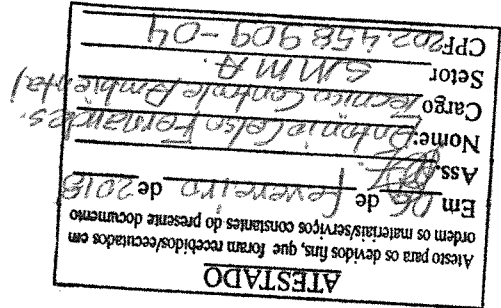 ATESTADO
Atesto para os devidos fins, que foram recebidos/executados em
ordem os materiais/serviços constantes do presente documento
Em 06 de Fevereiro de 2018
Ass.
Nome: Antonio Celso Fernandes.
Cargo Tecnico Controle Ambiental
Setor S.M.M.A.
CPF 202.458.909-04